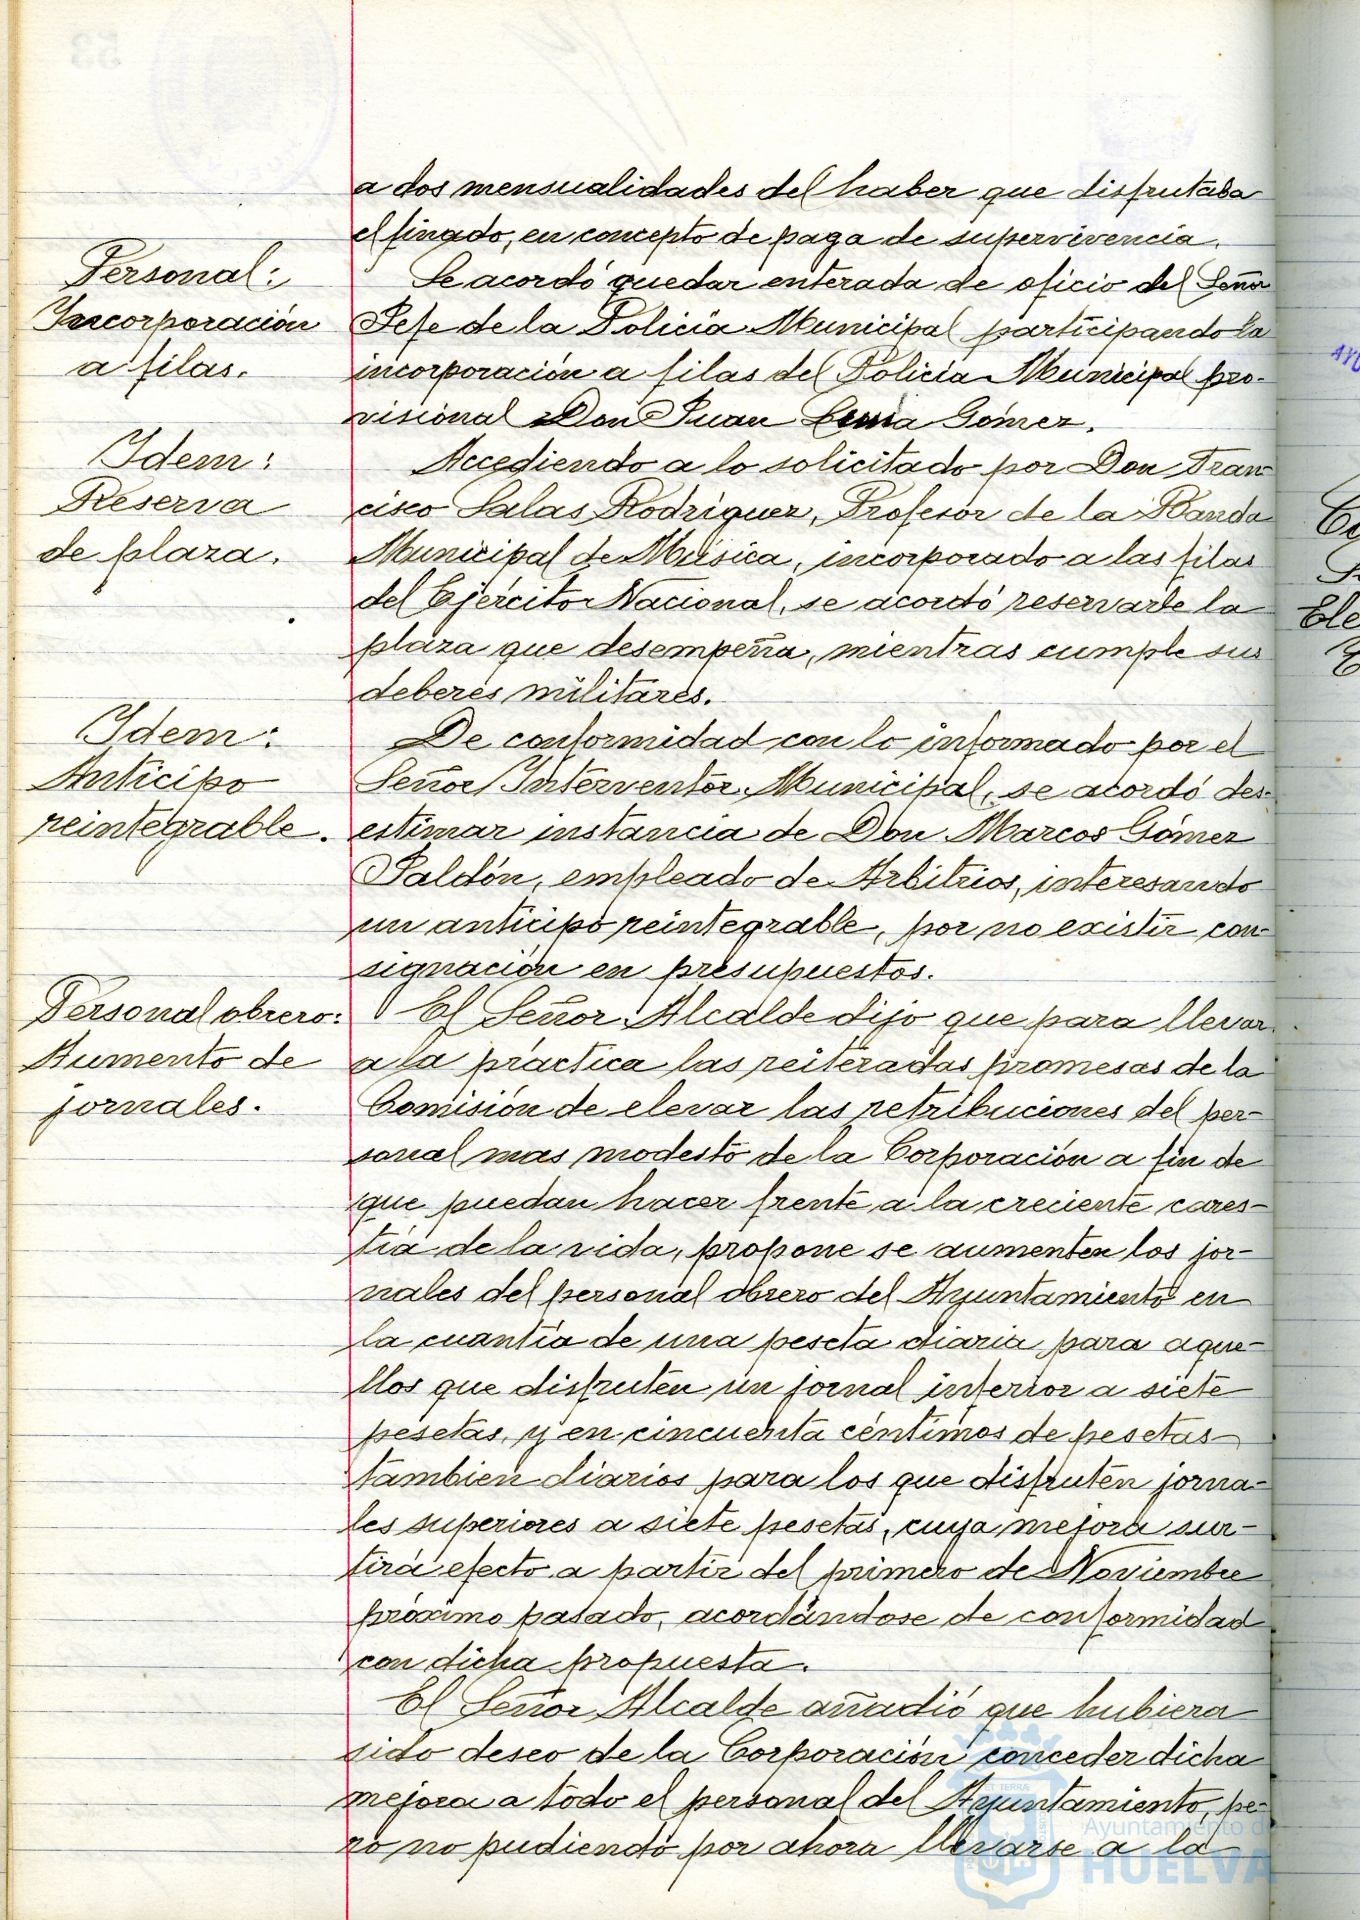 a dos mensualidades del haber que disfrutaba
el finado, en concepto de paga de supervivencia.
Personal:
Incorporación
a filas.
Se acordó quedar enterada de oficio del Señor
Jefe de la Policía Municipal participando la
incorporación a filas del Policía Municipal pro-
visional Don Juan Gómez.
Idem:
Reserva
de plaza.
Accediendo a lo solicitado por Don Fran-
cisco Salas Rodríguez, Profesor de la Banda
Municipal de Música, incorporado a las filas
del Ejército Nacional, se acordó reservarle la
plaza que desempeña, mientras cumple sus
deberes militares.
Idem:
Anticipo
reintegrable.
De conformidad con lo informado por el
Señor Interventor Municipal, se acordó des-
estimar instancia de Don Marcos Gómez
empleado de Arbitrios, interesando
un anticipo reintegrable, por no existir con-
signación en presupuestos.
Personal obrero:
Aumento de
jornales.
El Señor Alcalde dijo que para llevar
a la práctica las reiteradas promesas de la
Comisión de elevar las retribuciones del per-
sonal mas modesto de la Corporación a fin de
que puedan hacer frente a la creciente cares-
tía de la vida, propone se aumenten los jor-
nales del personal obrero del Ayuntamiento en
la cuantía de una peseta diaria para aque-
llos que disfruten un jornal inferior a siete
pesetas, y en cincuenta céntimos de pesetas
tambien diarios para los que disfruten jorna-
les superiores a siete pesetas, cuya mejora sur-
tirá efecto a partir del primero de Noviembre
próximo pasado, acordándose de conformidad
con dicha propuesta.
El Señor Alcalde añadió que hubiera
sido deseo de la Corporación conceder dicha
mejora a todo el personal del Ayuntamiento, pe-
ro no pudiendo por ahora llevarse a la
Ayuntamiento de
HUELVA